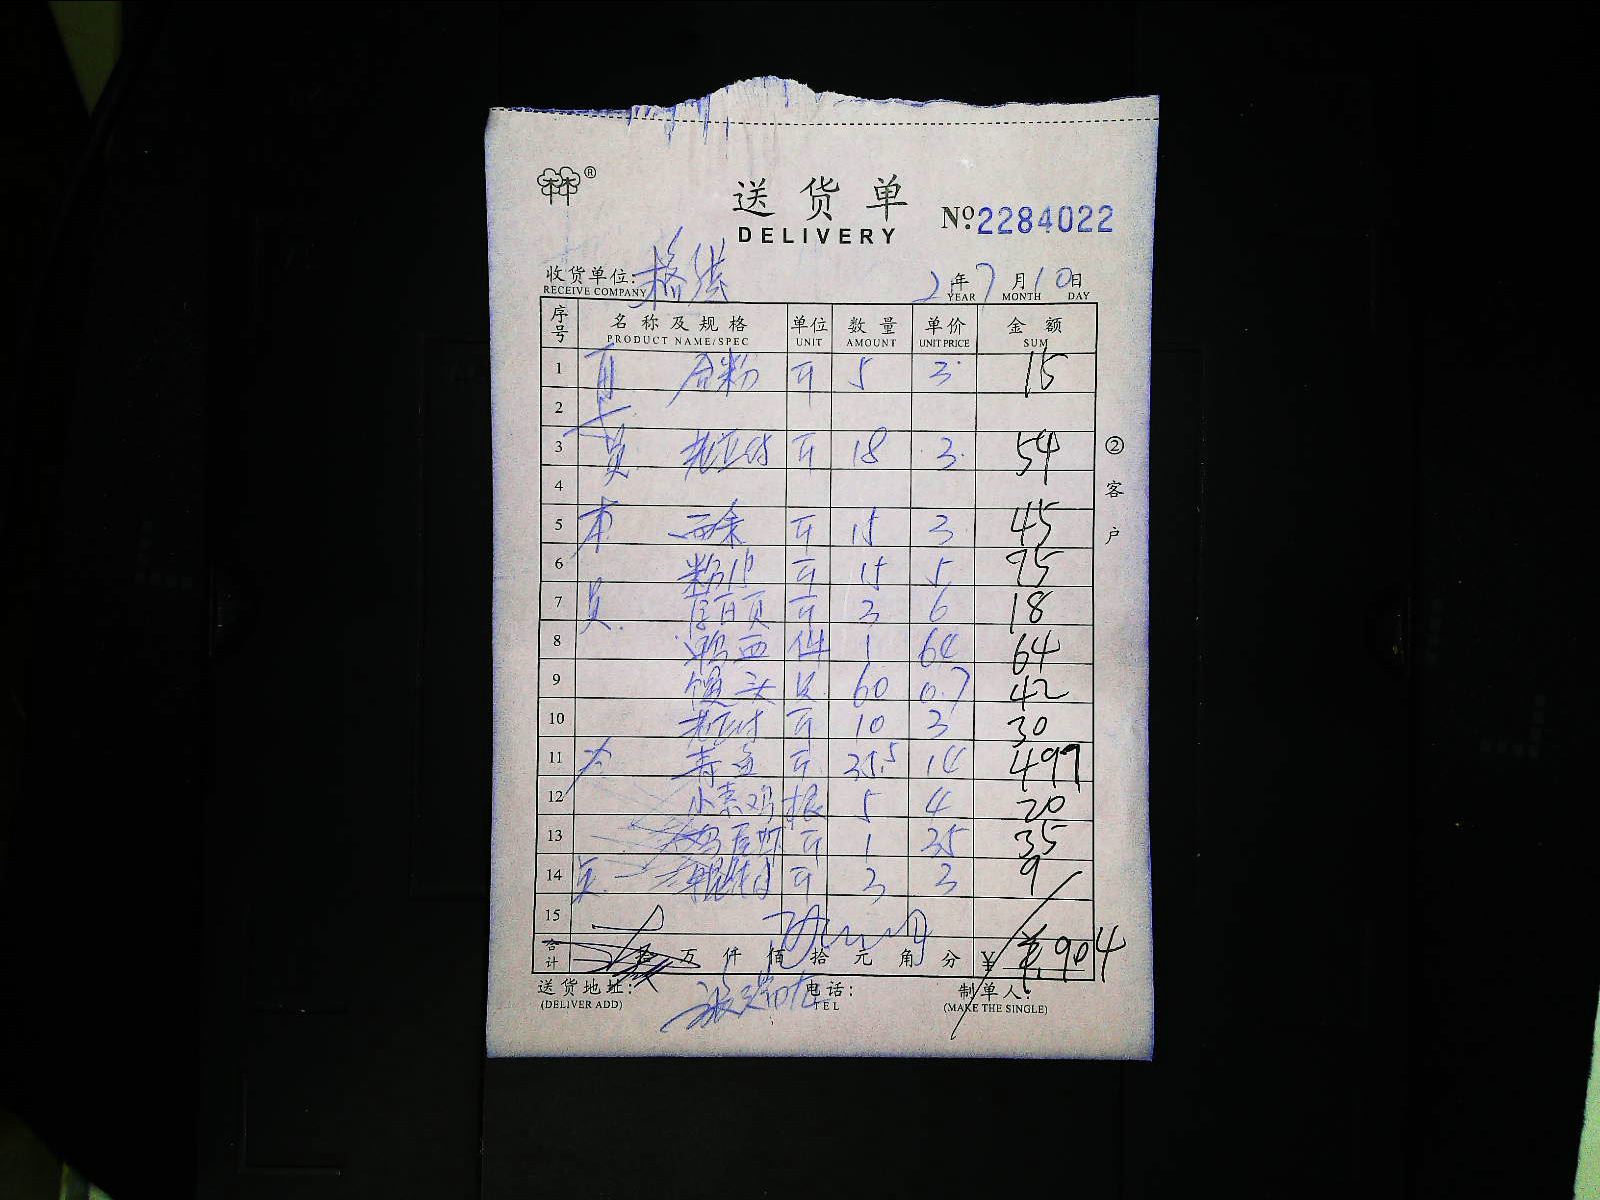 林®
送货单
DELIVERY
No. 2284022
收货单位: 2年7月10日
RECEIVE COMPANY YEAR MONTH DAY
序号 名称及规格 单位 数量 单价 金额
PRODUCT NAME/SPEC UNIT AMOUNT UNIT PRICE SUM
1 斤 5 3 15
2
3 斤 18 3 54
4
5 斤 15 3 45
6 斤 15 5 75
7 厚百页 斤 3 6 18
8 鸭血 件 1 64 64
9 馒头 只 60 0.7 42
10 斤 10 3 30
11 青鱼 斤 35.5 14 497
12 小素鸡 根 5 4 20
13 斤 1 35 35
14 斤 3 3 9
15
合计 拾 万 仟 佰 拾 元 角 分 ¥ ¥904
送货地址: 电话: 制单人:
(DELIVER ADD) TEL (MAKE THE SINGLE)
②客户